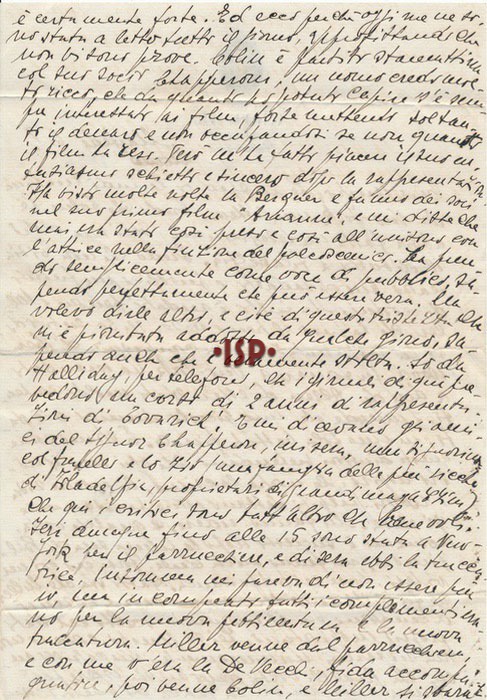 è certamente forte. Ed ecco perchè oggi me ne so-
no stata a letto tutto il giorno, approfittando che
non vi sono prove. Colin è partito stamattina
col suo socio Chapperon, un uomo credo mol-
to ricco, che da quanto ho potuto capire s'è sem-
pre interessato ai film, forse mettendo soltan-
to il denaro e non occupandosi se non quando
il film
entusiasmo schietto e sincero dopo la rappresentazione
Ha visto molte volte la Bergner e fu uno dei soci
nel suo primo film "Arianna", e mi disse che
mai era stato così preso e così all'unisono con
l'attrice nella finzione del palcoscenico. La pren-
do semplicemente come voce di pubblico, sa-
pendo perfettamente che può essere vera. Ma
volevo dirle altro, e cioè di questa tristezza che
mi è piombata addosso da qualche giorno, sa-
pendo anche che è stolta. So da
Halliday, per telefono, che i giornali di qui pre-
vedono un corso di 2 anni di rappresenta-
zioni di E mi dicevano gli ami-
ci del signor Chapperon, una signorina
col fratello e lo zio (una famiglia delle più ricche
di Filadelfia, proprietari di grandi magazzini)
che qui i critici sono tutt'altro che benevoli.
Ieri dunque fino alle 15 sono stata a New-
York per il parrucchiere, e di sera ebbi la trucca-
trice. Insomma mi pareva di non essere più
io, ma in compenso tutti i complimenti era-
no per la nuova pettinatura e la nuova
truccatura. Miller venne dal parrucchiere
e con me v'era la De Vecchi, fida accompa-
gnatrice, poi venne Colin, e Miller si
ISP